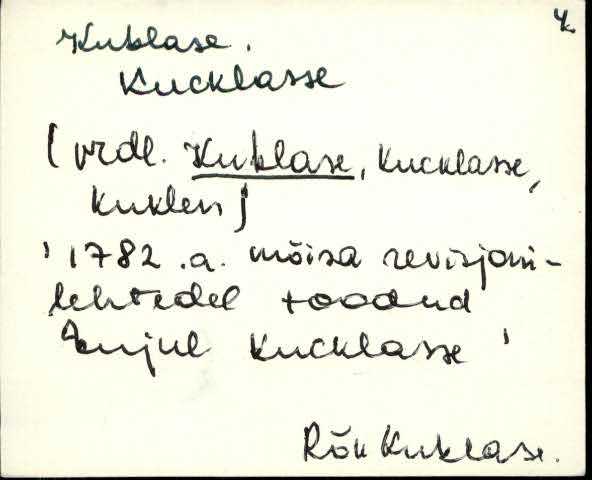 4.
Kuklase.
Kucklasse
(vrdl. Kuklase, Kucklasse,
Kuklen)
' 1782.a. mõisa revisjoni-
lehtedel toodud
kujul Kucklasse '
Rõu Kuklase.